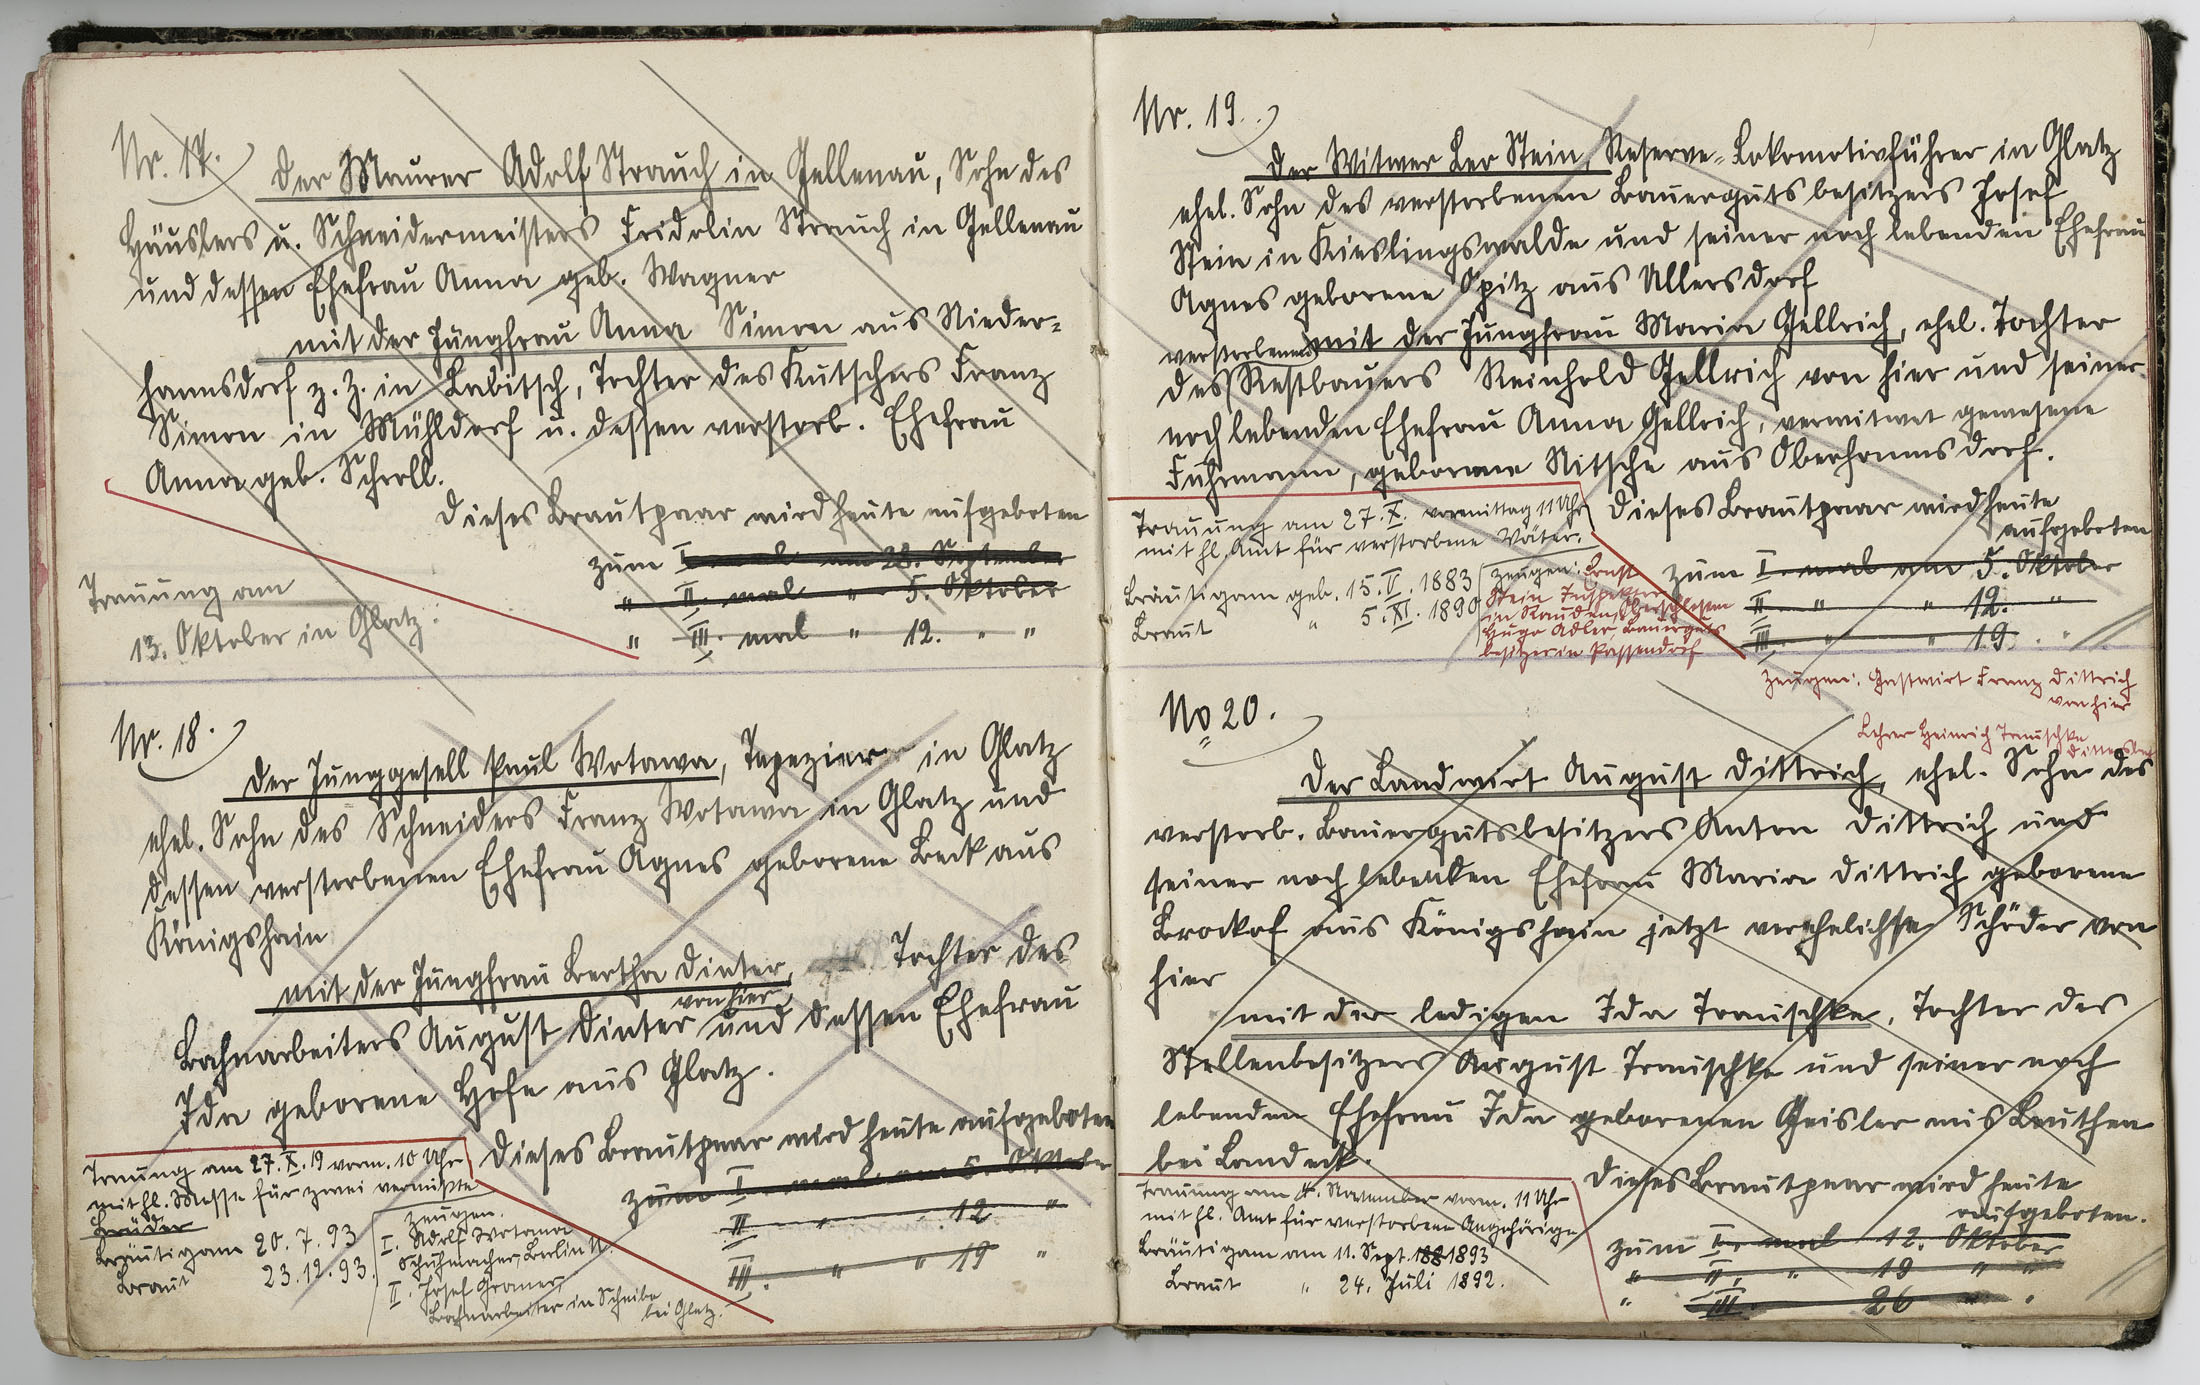 Nr. 17.
Der Maurer Adolf Strauch in Gellenau, Sohn des
Häuslers u. Schneidermeisters Fridolin Strauch in Gellenau
und dessen Ehefrau Anna geb. Wagner
mit der Jungfrau Anna Simon aus Nieder-
hannsdorf z. Z. in Labitsch, Tochter des Kutschers Franz
Simon in Mühldorf u. dessen verstorb. Ehefrau
Anna geb. Scholl.
Dieses Brautpaar wird heute aufgeboten
zum I mal am 28. September
" II. mal " 5. Oktober
" III. mal " 12. " "
Trauung am
13. Oktober in Glatz.
Nr. 18.
Der Junggesell Paul Wotawa, Tapezierer in Glatz
ehel. Sohn des Schneiders Franz Wotawa in Glatz und
dessen verstorbenen Ehefrau Agnes geborene Beck aus
Königshain
mit der Jungfrau Bertha Dinter, Tochter des
von hier
Bahnarbeiters August Dinter und dessen Ehefrau
Ida geborene Hofe aus Glatz.
Dieses Brautpaar wird heute aufgeboten
zum I. mal am 5. Oktober
II " " 12 "
III. " " 19 "
Trauung am 27. X. 19 vorm. 10 Uhr
mit hl. Messe für zwei vermißte
Brüder
Bräutigam 20. 7. 93
Braut 23. 12. 93.
Zeugen.
I. Adolf Wotawa
Schuhmacher, Berlin N.
II. Josef Gramer,
Bahnarbeiter in Scheibe
bei Glatz.
Nr. 19.
Der Witwer Leo Stein, Reserve-Lokomotivführer in Glatz
ehel. Sohn des verstorbenen Bauergutsbesitzers Josef
Stein in Kieslingswalde und seiner noch lebenden Ehefrau
Agnes geborene Opitz aus Ullersdorf
mit der Jungfrau Maria Gellrich, ehel. Tochter
verstorbenen
des Restbauers Reinhold Gellrich von hier und seiner
noch lebenden Ehefrau Anna Gellrich, verwitwet gewesene
Fuhrmann, geborene Nitsche aus Oberhannsdorf.
Dieses Brautpaar wird heute
aufgeboten
zum I. mal am 5. Oktober
II. " " 12. "
III. " " 19. "
Trauung am 27. X. vormittag 11 Uhr
mit hl. Amt für verstorbene Väter.
Bräutigam geb. 15. V. 1883
Braut " 5. XI. 1890
Zeugen: Ernst
Stein Inspektor
in Rauden, Oberschlesien
Hugo Adler, Bauerguts
besitzer in Passendorf
Zeugen: Gastwirt Franz Dittrich
von hier
Lehrer Heinrich Trauschke
No 20.
Der Landwirt August Dittrich, ehel. Sohn des
verstorb. Bauergutsbesitzers Anton Dittrich und
seiner noch lebenden Ehefrau Maria Dittrich geborene
Brockof aus Königshain jetzt verehelichte Schöder von
hier
mit der ledigen Ida Trauschke, Tochter des
Stellenbesitzers August Trauschke und seiner noch
lebenden Ehefrau Ida geborenen Geisler aus Leuthen
bei Landeck.
Dieses Brautpaar wird heute
aufgeboten.
zum I. mal 12. Oktober
" II. " 19 " "
" III. 26 " "
Trauung am 4. November vorm. 11 Uhr
mit hl. Amt für verstorbene Angehörige
Bräutigam am 11. Sept. 1893
Braut " 24. Juli 1892.